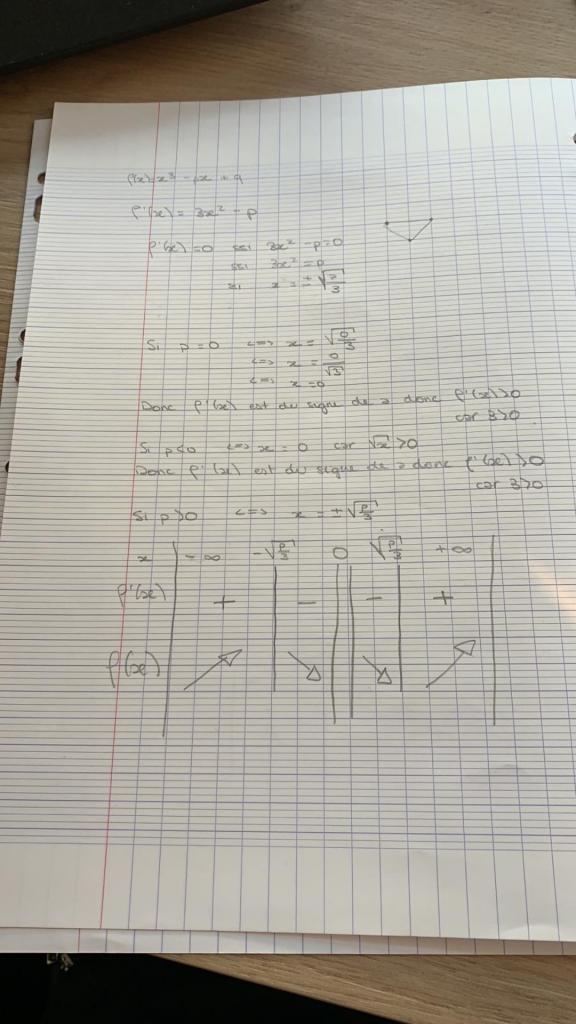 f(x) = x³ - px + q
f'(x) = 3x² - p
f'(x) = 0 ssi 3x² - p = 0
ssi 3x² = p
ssi x = ±√(p/3)
Si p = 0 <=> x = √(0/3)
<=> x = 0/√3
<=> x = 0
Donc f'(x) est du signe de a donc f'(x) > 0
car 3 > 0
Si p < 0 <=> x = 0 car √x > 0
Donc f'(x) est du signe de a donc f'(x) > 0
car 3 > 0
Si p > 0 <=> x = ±√(p/3)
x -∞ -√(p/3) 0 √(p/3) +∞
f'(x) + - - +
f(x) ↗ ↘ ↘ ↗